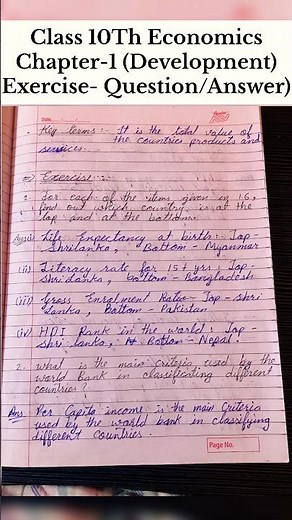 Class 10Th Economics
Chapter-1 (Development)
Exercise- Question/Answer)
Date
Key terms :- It is the total value of
the countries products and
services.
Exercise :-
for each of the items given in 1.6,
find out which country is at the
top and at the bottom.
Ans(i) Life Expectancy at birth : Top -
Shrilanka, Bottom - Myanmar
(ii) Literacy rate for 15+ yrs : Top
Shri lanka, bottom - Bangladesh
(iii) Gross Enrolment Ratio - Top - shri
lanka, Bottom - Pakistan
(iv) HDI Rank in the world : Top -
Shri lanka, Bottom - Nepal.
2. what is the main criteria used by the
world Bank in classificating different
countries ?
Ans. Per Capita income is the main Criteria
used by the world bank in classifying
different countries.
Page No.